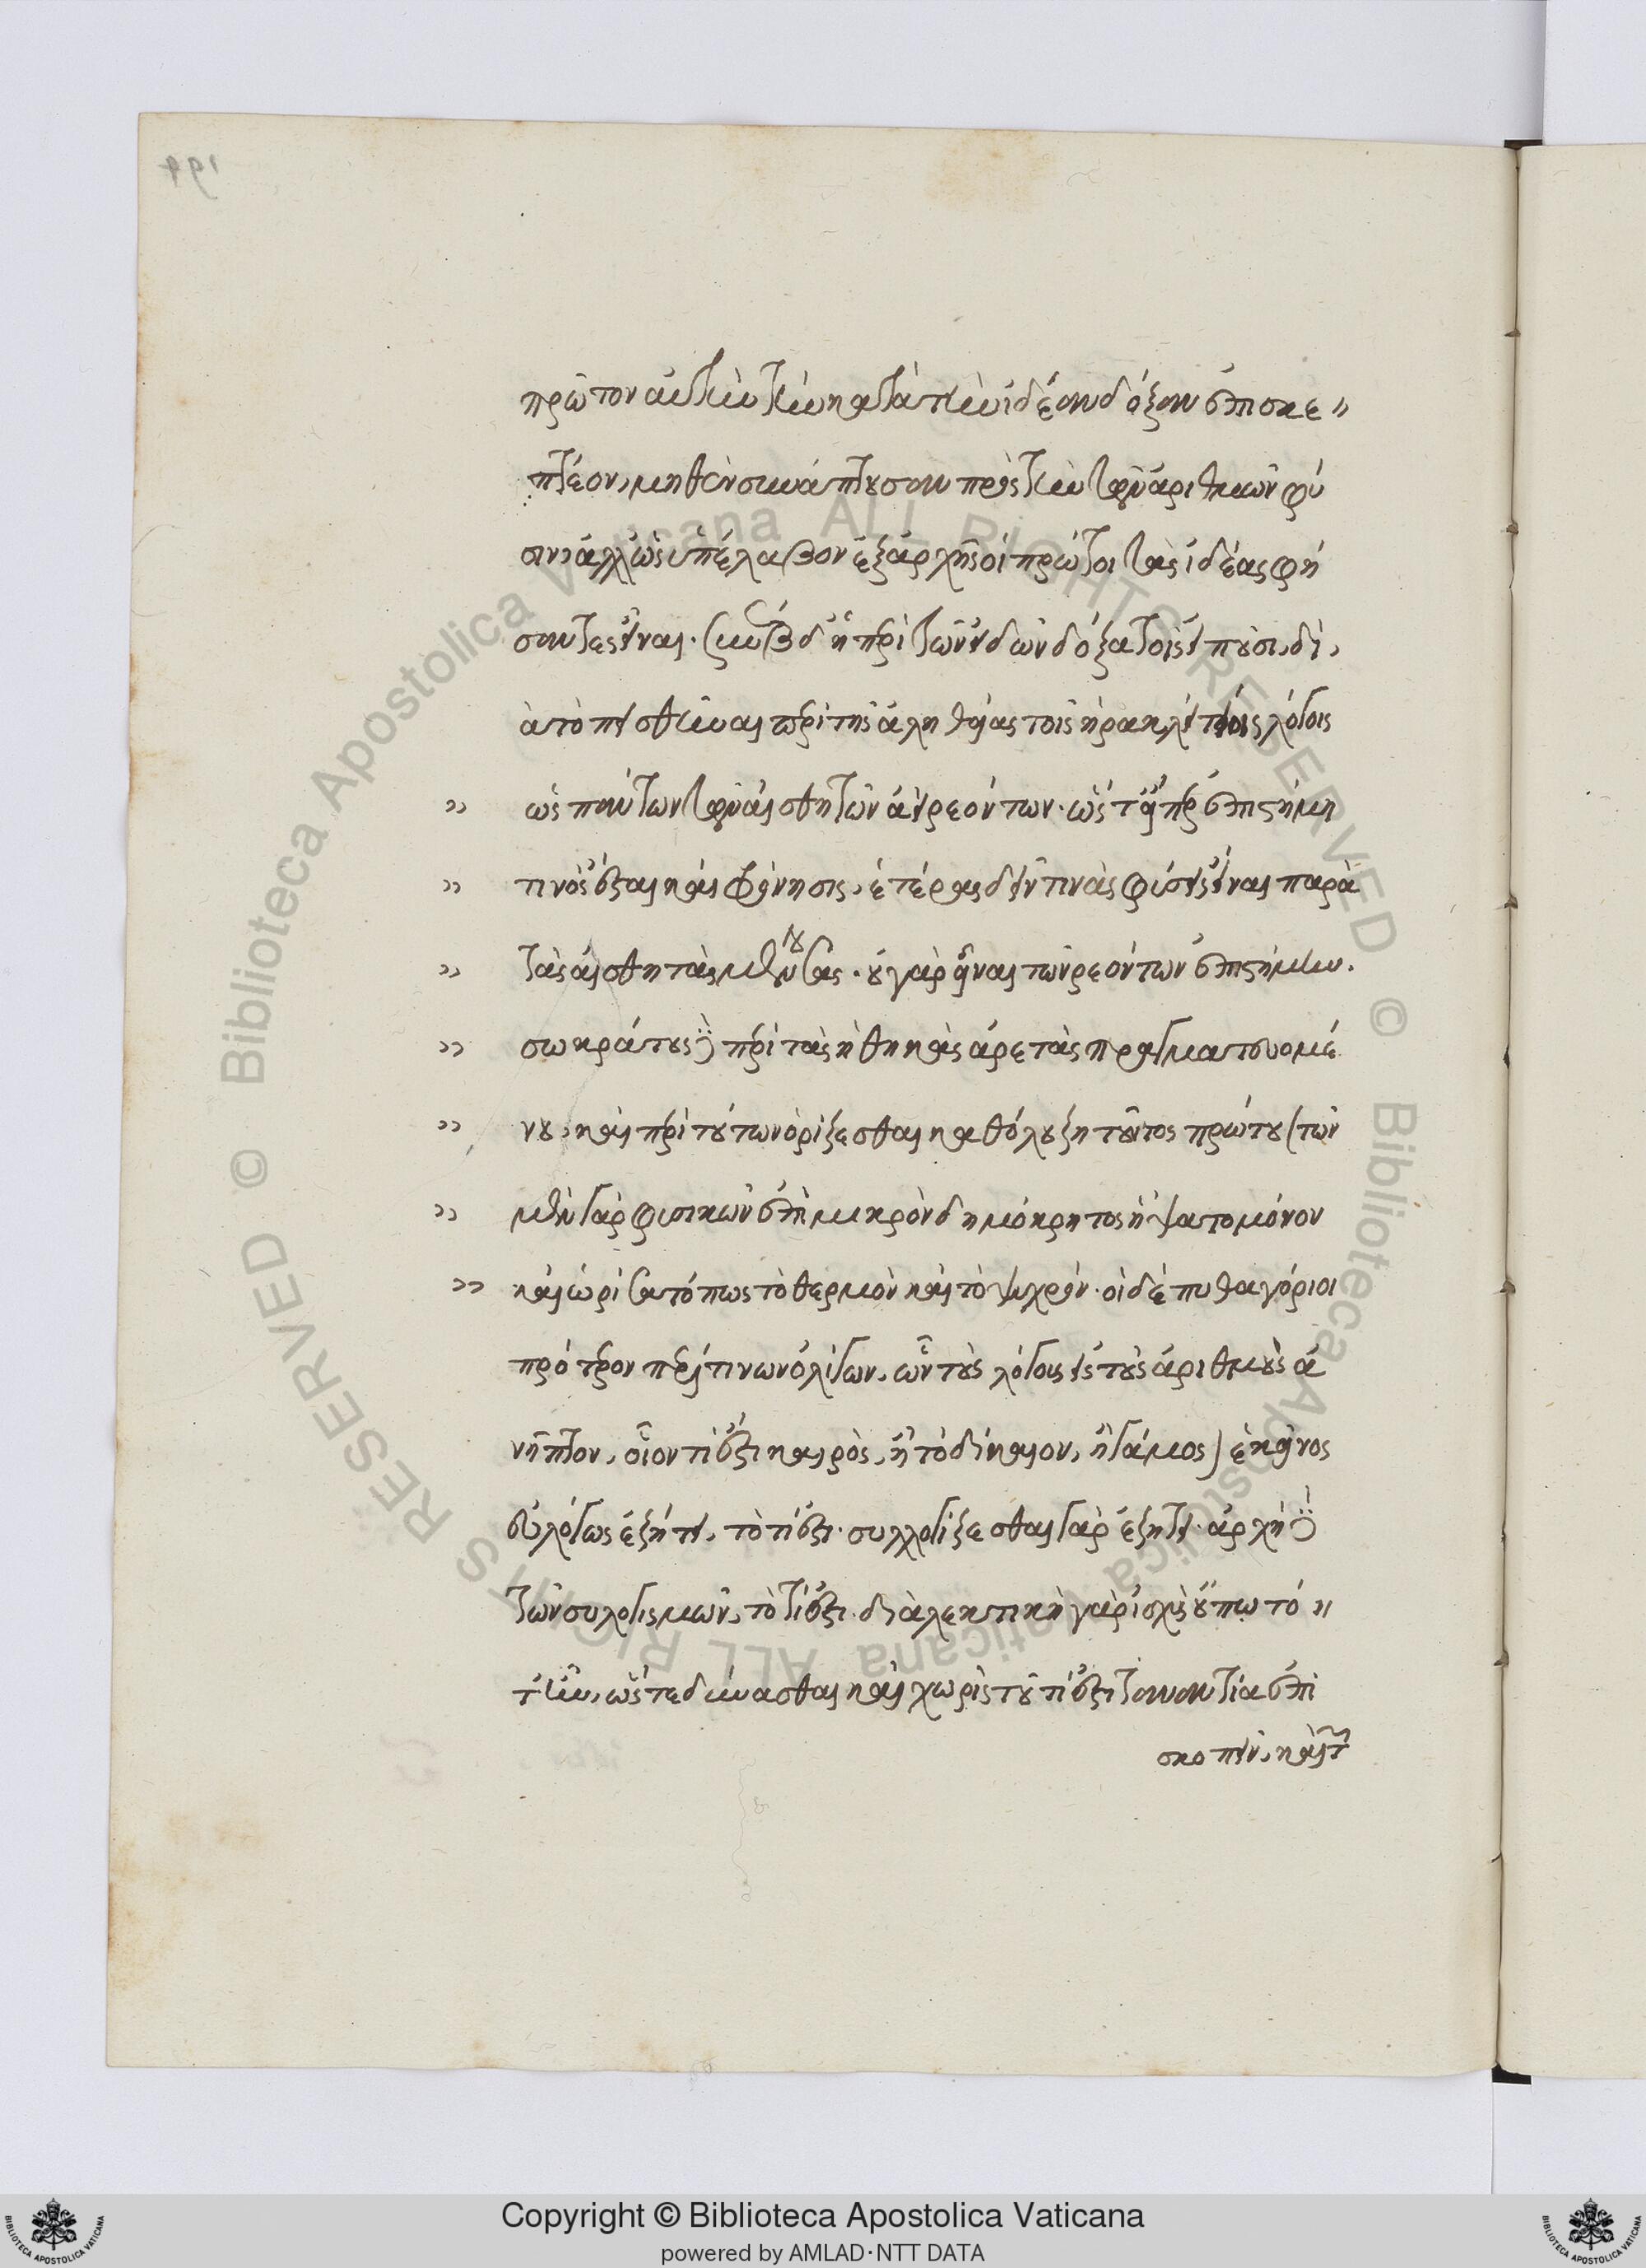 πρῶτον αὐτὴν τὴν κατὰ τὴν ἰδέαν δόξαν ἐπισκε
πτέον, μηθὲν συνάπτουσαν πρὸς τὴν τῶν ἀριθμῶν φύ
σιν, ἀλλ' ὡς ὑπέλαβον ἐξ ἀρχῆς οἱ πρῶτοι τὰς ἰδέας φή
σαντες εἶναι. συνέβη δ' ἡ περὶ τῶν εἰδῶν δόξα τοῖς εἰποῦσι, δι
ὰ τὸ πεισθῆναι περὶ τῆς ἀληθείας τοῖς ἡρακλειτείοις λόγοις
ὡς πάντων τῶν αἰσθητῶν ἀεὶ ῥεόντων. ὥς τ' εἴπερ ἐπιστήμη
τινὸς ἔσται καὶ φρόνησις, ἑτέρας δεῖν τινὰς φύσεις εἶναι παρὰ
τὰς αἰσθητὰς μενούσας. οὐ γὰρ εἶναι τῶν ῥεόντων ἐπιστήμην.
σωκράτους δὲ περὶ τὰς ἠθικὰς ἀρετὰς πραγματευομέ
νου, καὶ περὶ τούτων ὁρίζεσθαι καθόλου ζητοῦντος πρώτου (τῶν
μὲν γὰρ φυσικῶν ἐπὶ μικρὸν δημόκριτος ἥψατο μόνον
καὶ ὡρίσατό πως τὸ θερμὸν καὶ τὸ ψυχρόν. οἱ δὲ πυθαγόριοι
πρότερον περί τινων ὀλίγων, ὧν τοὺς λόγους εἰς τοὺς ἀριθμοὺς ἀ
νῆπτον, οἷον τί ἐστι καιρὸς, ἢ τὸ δίκαιον, ἢ γάμος) ἐκεῖνος
εὐλόγως ἐζήτει, τὸ τί ἐστι. συλλογίζεσθαι γὰρ ἐζήτει. ἀρχὴ δὲ
τῶν συλογισμῶν, τὸ τί ἐστι. διαλεκτικὴ γὰρ ἰσχὺς οὔπω τό
τ' ἦν, ὥστε δύνασθαι καὶ χωρὶς τοῦ τί ἐστι τἀναντία ἐπι
σκοπεῖν, καὶ τῶν
Copyright © Biblioteca Apostolica Vaticana
powered by AMLAD·NTT DATA